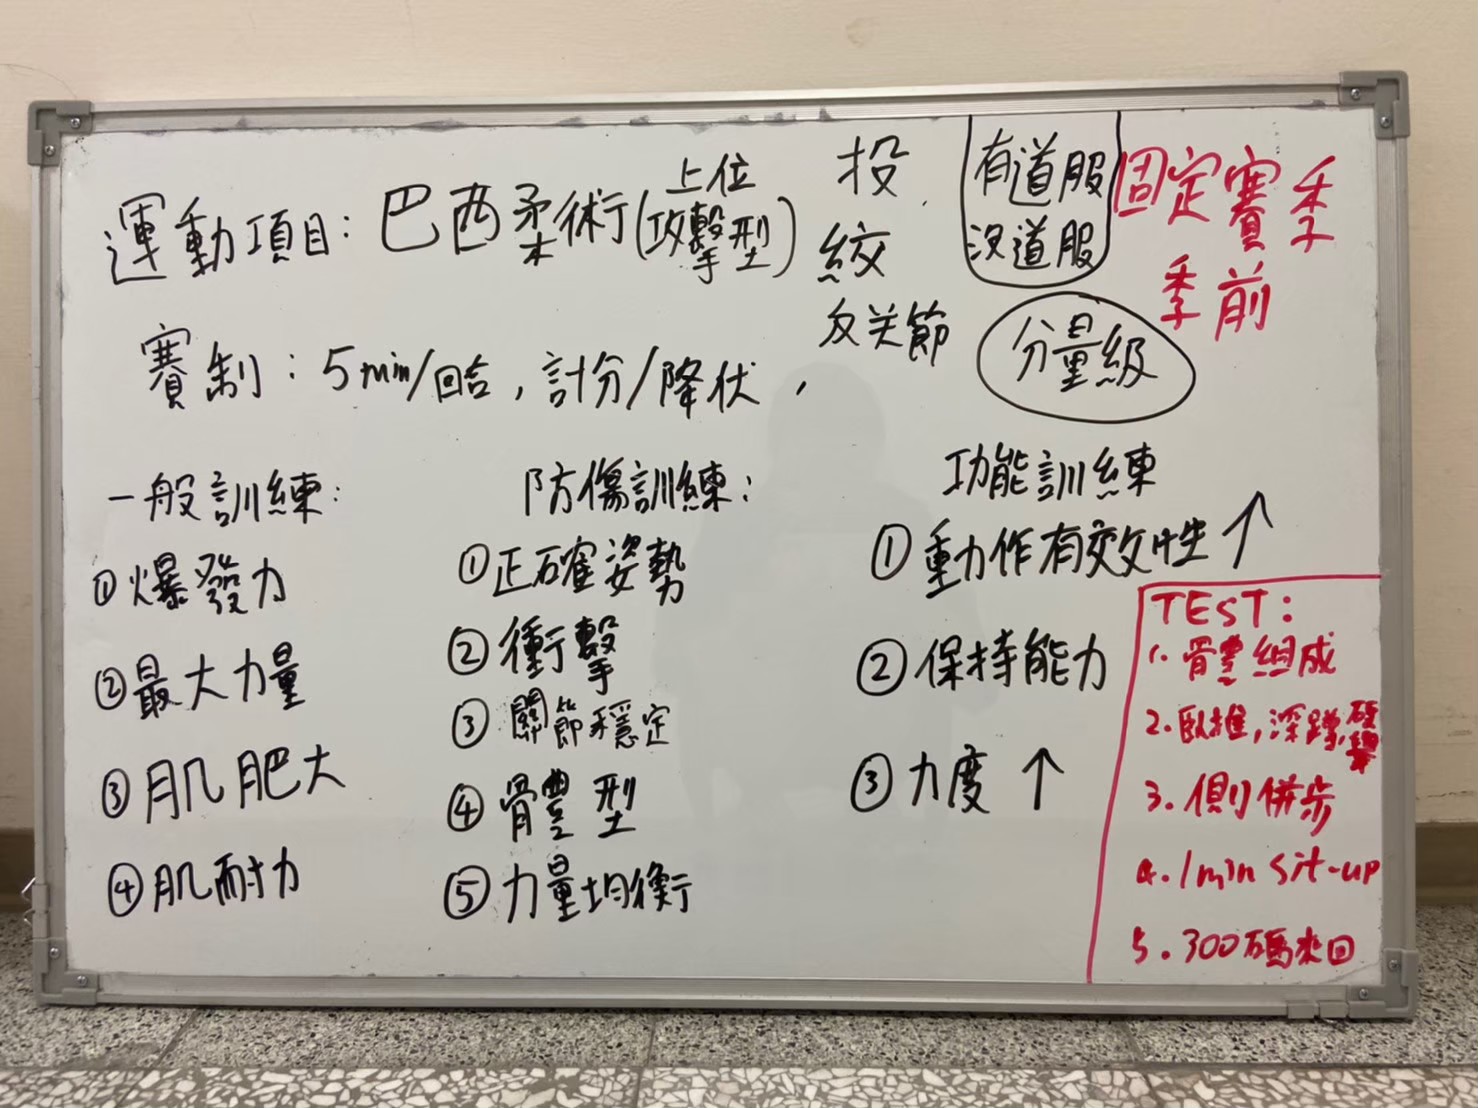 運動項目：巴西柔術(上位攻擊型)
投.
絞
反关節
有道服
沒道服
固定賽季
季前
分量級
賽制：5min/回合，計分/降伏，
一般訓練：
①爆發力
②最大力量
③肌肥大
④肌耐力
防傷訓練：
①正確姿勢
②衝擊
③關節穩定
④骨豊型
⑤力量均衡
功能訓練
①動作有效性↑
②保持能力
③力度↑
TEST：
1. 體組成
2. 臥推，深蹲，硬舉
3. 側併步
4. 1min sit-up
5. 300碼來回